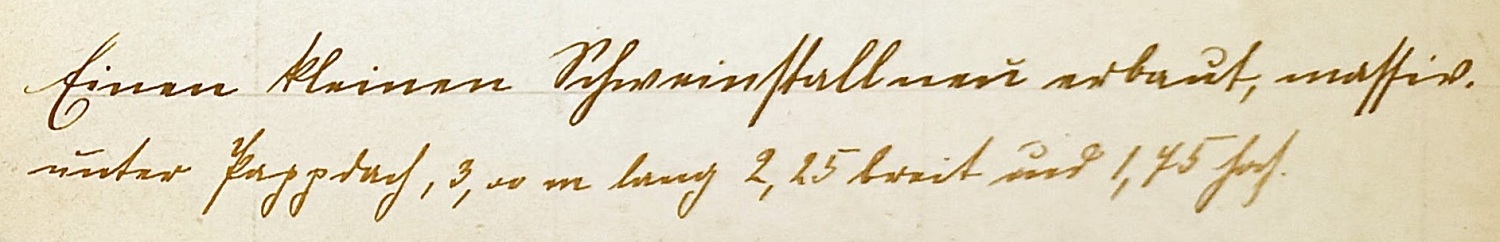 Einen kleinen Schweinstall neu erbaut, massiv.
unter Pappdach, 3,00 m lang 2,25 breit und 1,75 hoch.